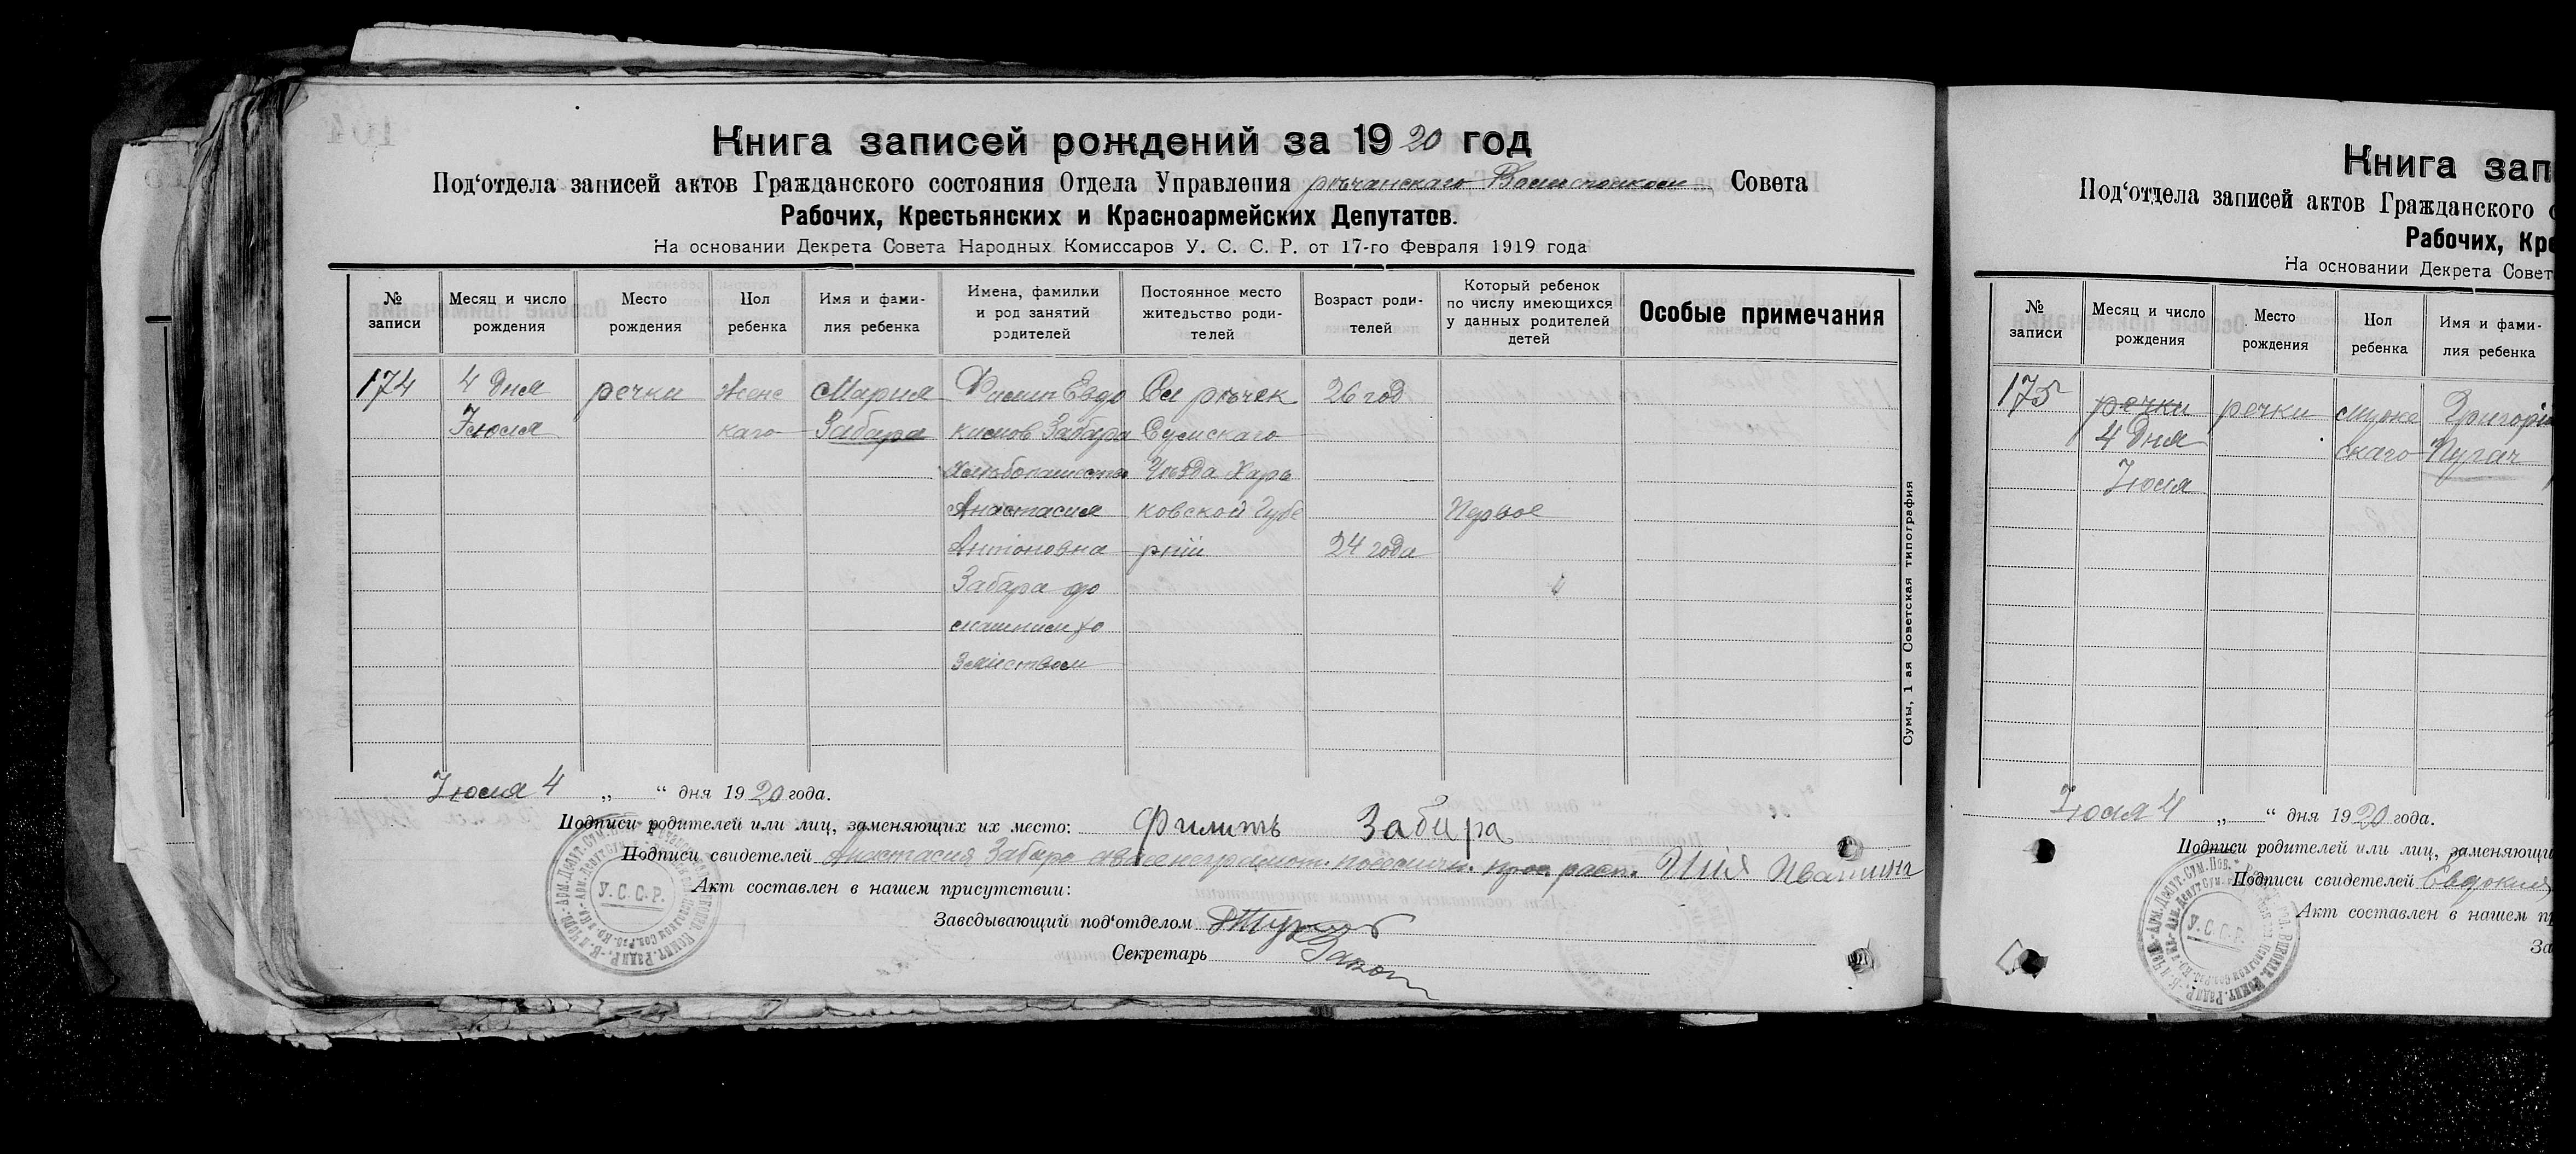 Книга записей рождений за 1920 год
Под‘отдела записей актов Гражданского состояния Отдела Управления речанскаго Волисполком Совета
Рабочих, Крестьянских и Красноармейских Депутатов.
На основании Декрета Совета Народных Комиссаров У. С. С. Р. от 17-го Февраля 1919 года
№ записи
Месяц и число рождения
Место рождения
Пол ребенка
Имя и фами-
лия ребенка
Имена, фамилии
и род занятий
родителей
Постоянное место
жительство роди-
телей
Возраст роди-
телей
Который ребенок
по числу имеющихся
у данных родителей
детей
Особые примечания
174
4 Дня
Июля
речки
Женс
каго
Мария
Забара
Филип Евдо
кимов Забара
Хлебопашество
Анастасия
Антоновна
Забара до
машним хо
зяйством
Сл речек
Сумскаго
Уезда Харь
ковской Губе
рніи
26 год
24 года
Первое
Июля 4 „ “ дня 1920 года.
Подписи родителей или лиц, заменяющих их место: Филипъ Забара
Подписи свидетелей Анастасия Забара
Акт составлен в нашем присутствии:
Заведывающий под‘отделом
Секретарь
У.С.С.Р.
Сумы, 1-ая Советская типография
Книга зап
Под‘отдела записей актов Гражданского с
Рабочих, Кре
На основании Декрета Совет
№
записи
Месяц и число
рождения
Место
рождения
Пол
ребенка
Имя и фами-
лия ребенка
175
речки
4 Дня
Июля
речки
муже
скаго
Григорій
Пугач
Июля 4 „ “ дня 1920 года.
Подписи родителей или лиц, заменяющи
Подписи свидетелей Евдокия
Акт составлен в нашем п
За
У.С.С.Р.